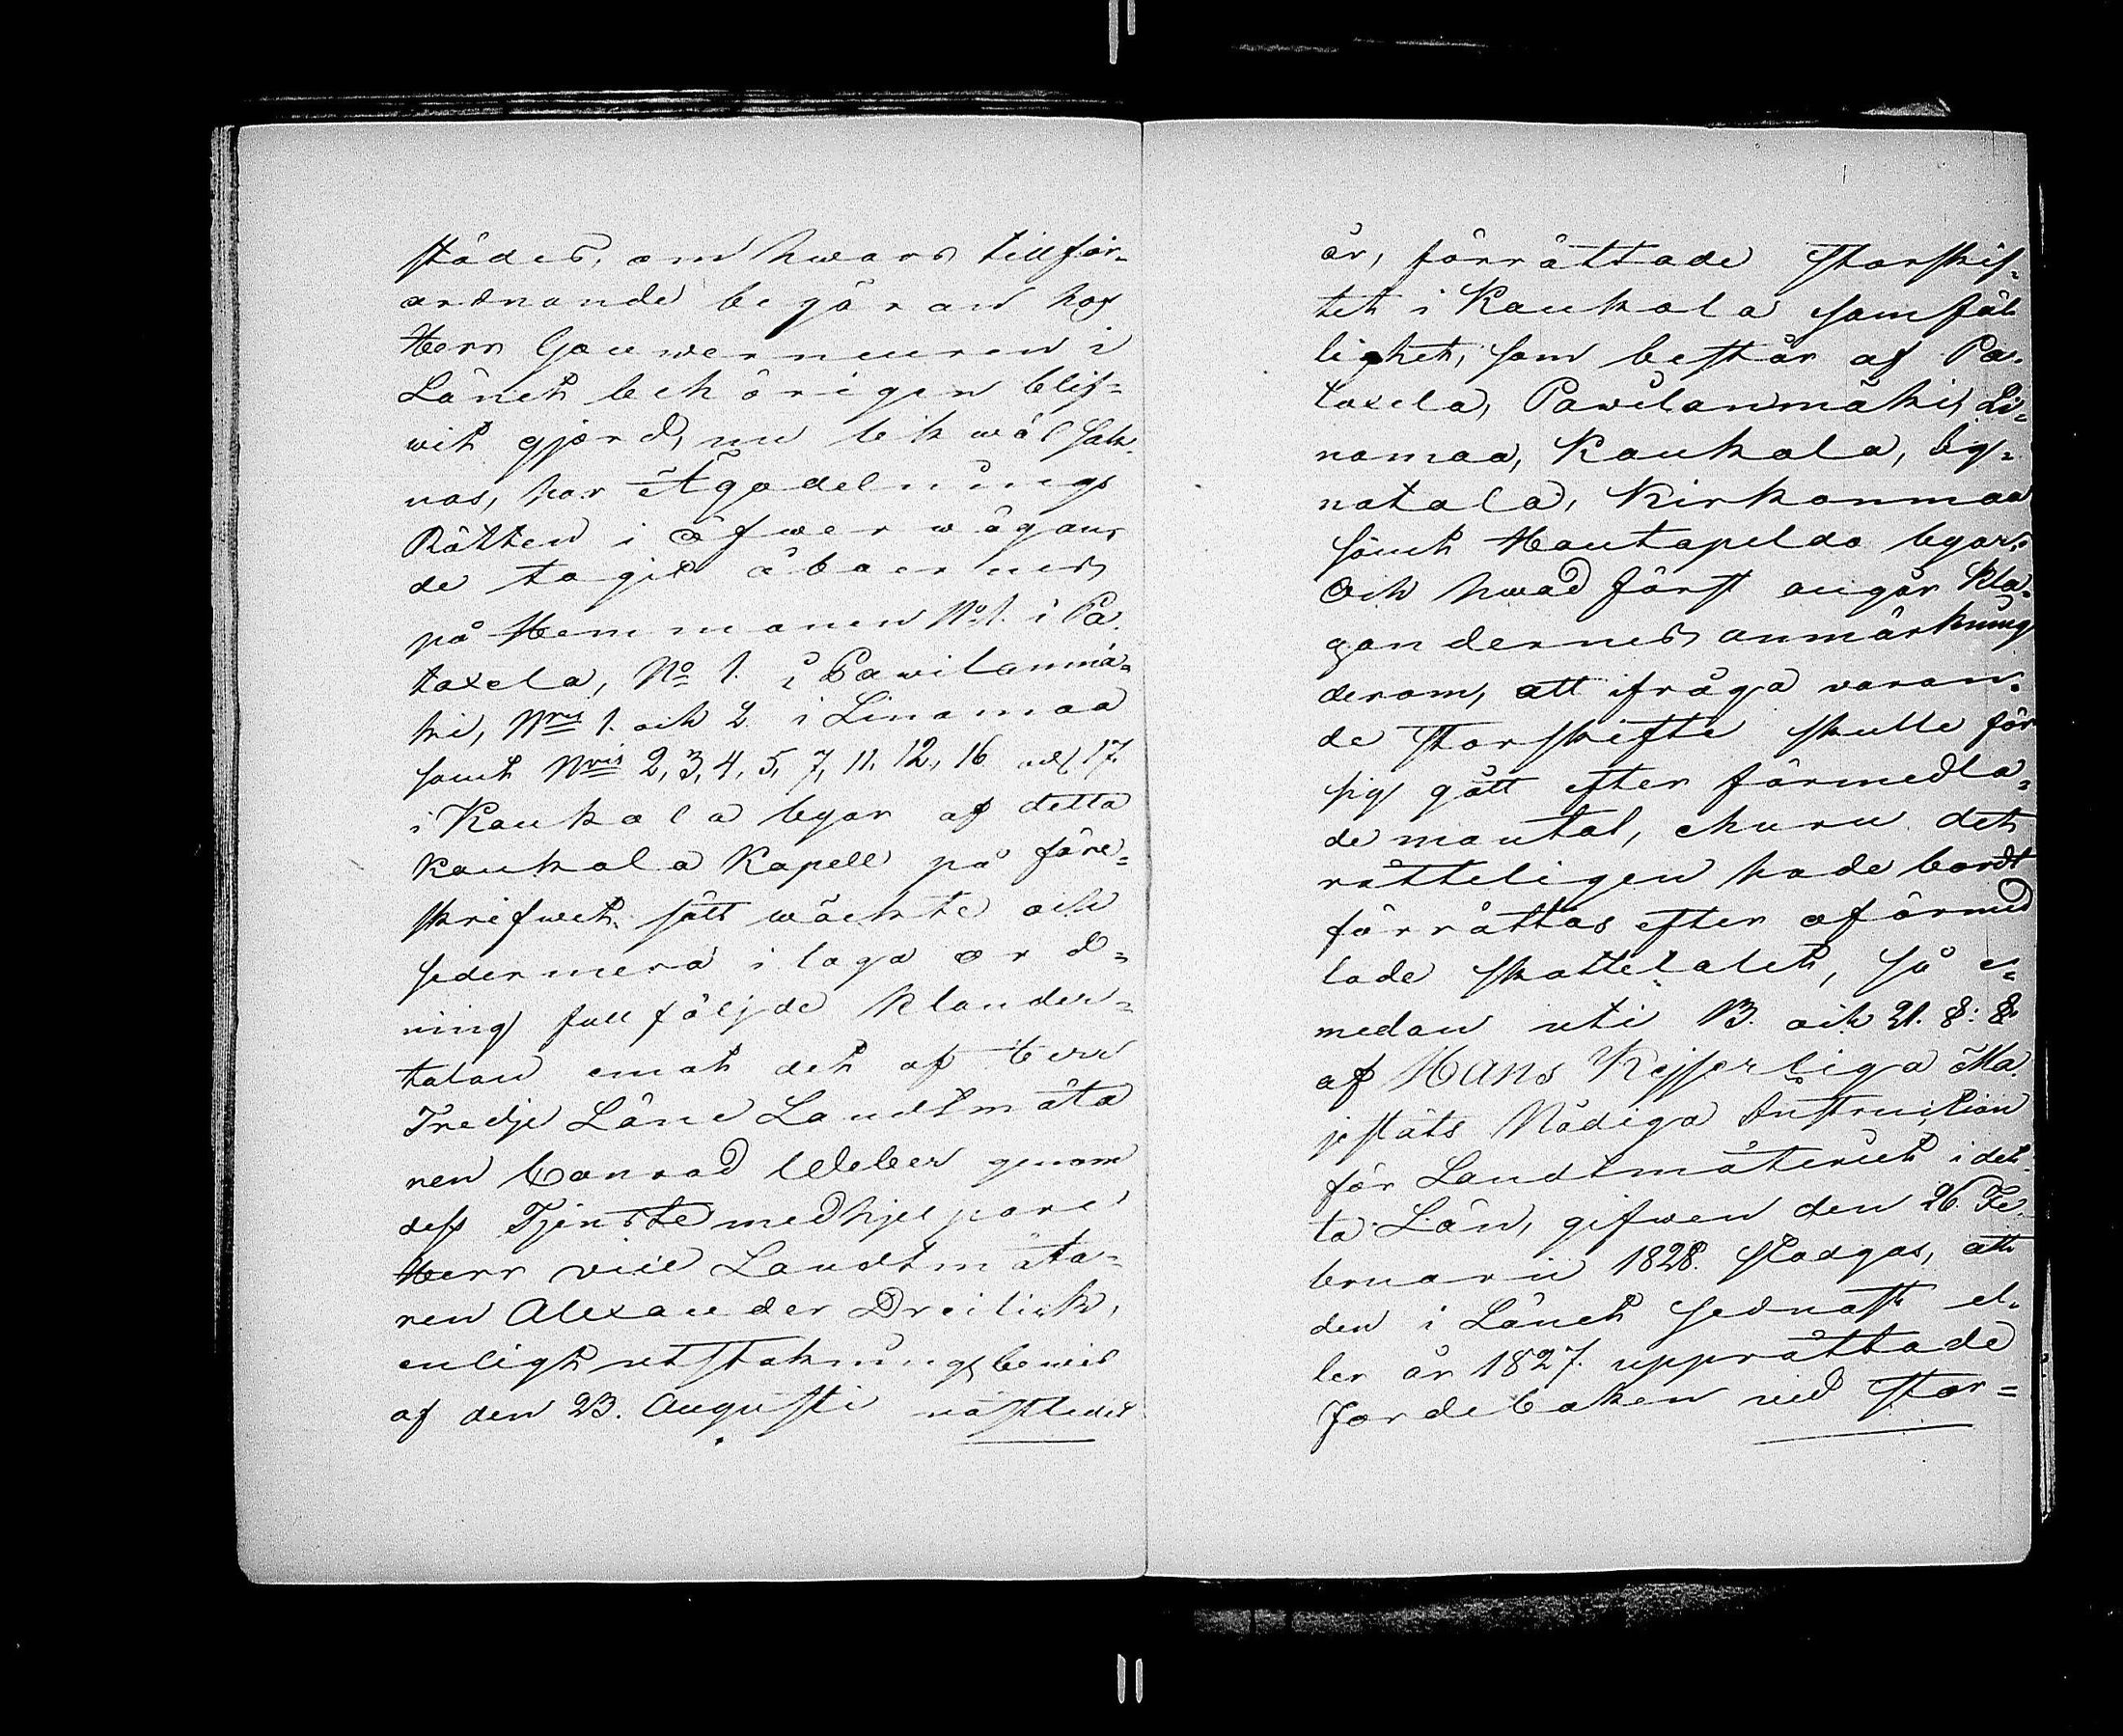 städes, om hwars tillför-
ordnande begäran hos
Herr Gouverneuren i
Länet behörigen blif-
wit gjord, nu likwäl sak-
nas, har Ägodelnings
Rätten i öfwerwägan-
de tagit åboernes
på Hemmanen No 1. i Pa-
taxela, No 1. i Pawilanmä-
ki, Nris 1. och 2 i Linamaa
samt Nris 2, 3, 4, 5, 7, 11, 12, 16 och 17.
i Kaukola byar af detta
Kaukola Kapell på före-
skrifwet sätt wäckte och
sedermera i laga ord-
ning fullföljde klander-
talan emot det af
Tredje Läne Landtmäta
ren Conrad Weber genom
dess Tjenstemedhjelpare
Herr vice Landtmäta-
ren Alexander Dreilick,
enligt utstakningsbewis
af den 23. Augusti nästledit
år, förrättade Storskif-
tet i Kaukola samfäl
lighet, som består af Pa-
taxela, Pawilanmäki, Li-
namaa, Kaukola,
natala, Kirkonmaa
samt Hautapeldo byar.
Och hwad först angår Kla-
gandernes anmärkning
derom, att ifråga varan-
de Storskifte skulle för
sig gått efter förmedla-
de mantal, ehuru det
rätteligen hade bordt
förrättas efter oförmed
lade skattetalet, så e-
medan uti 13. och 21. § §
af Hans Kejserliga Ma-
jestäts Nådiga Instruction
för Landtmäteriet i det
ta Län, gifwen den 26. Fe-
bruarii 1828. stadgas, att
den i Länet sednast el-
ler år 1827. upprättade
Jordeboken wid Stor-